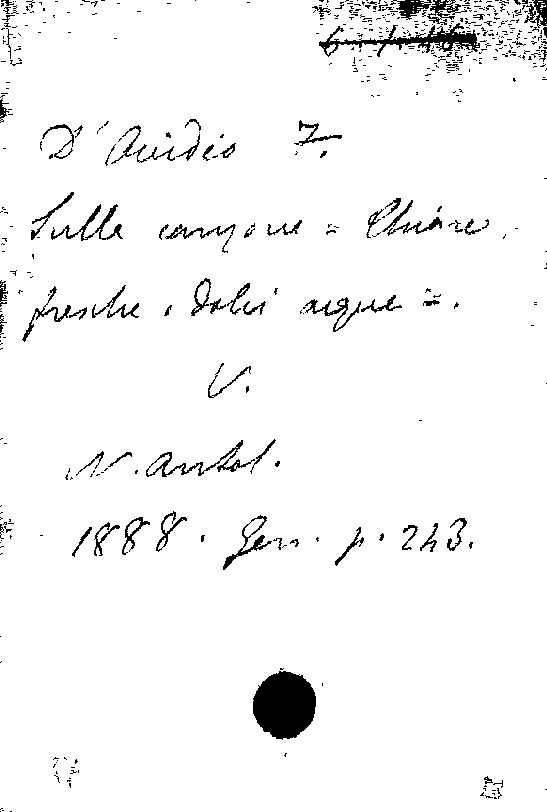 D'Ovidio F.
Sulla canzone = Chiare,
fresche e dolci acque =.
V.
N. Antol.
1888. Gen. p. 243.